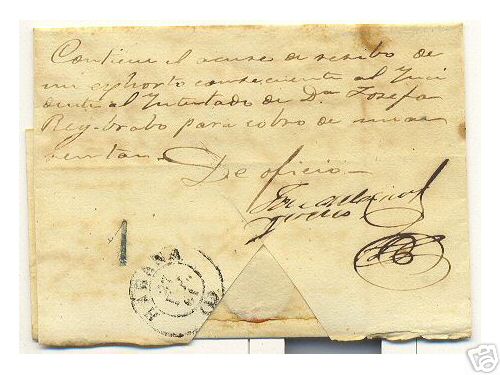 Contiene el acuse de recibo de
un exhorto consecuente al Ynci
dente al Yntestado de Dª Josefa
Rey-brabo para cobro de unas
rentas.
De oficio
1
HABANA